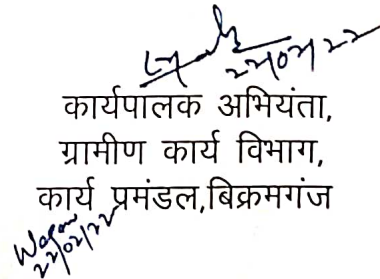 22/02/22
कार्यपालक अभियंता,
ग्रामीण कार्य विभाग,
कार्य प्रमंडल,बिक्रमगंज
22/02/22